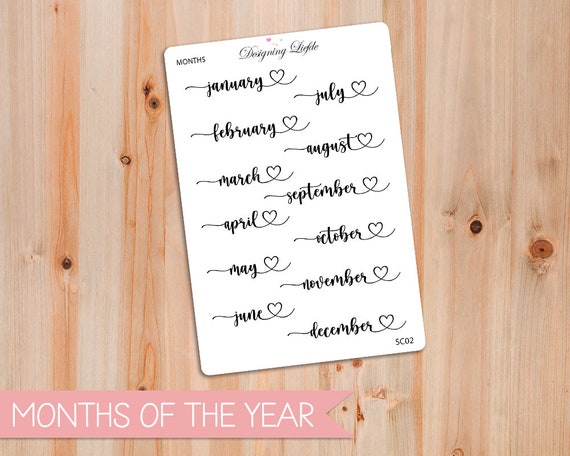 Designing Liefde
MONTHS
january
july
february
august
march
september
april
october
may
november
june
december
SC02
MONTHS OF THE YEAR